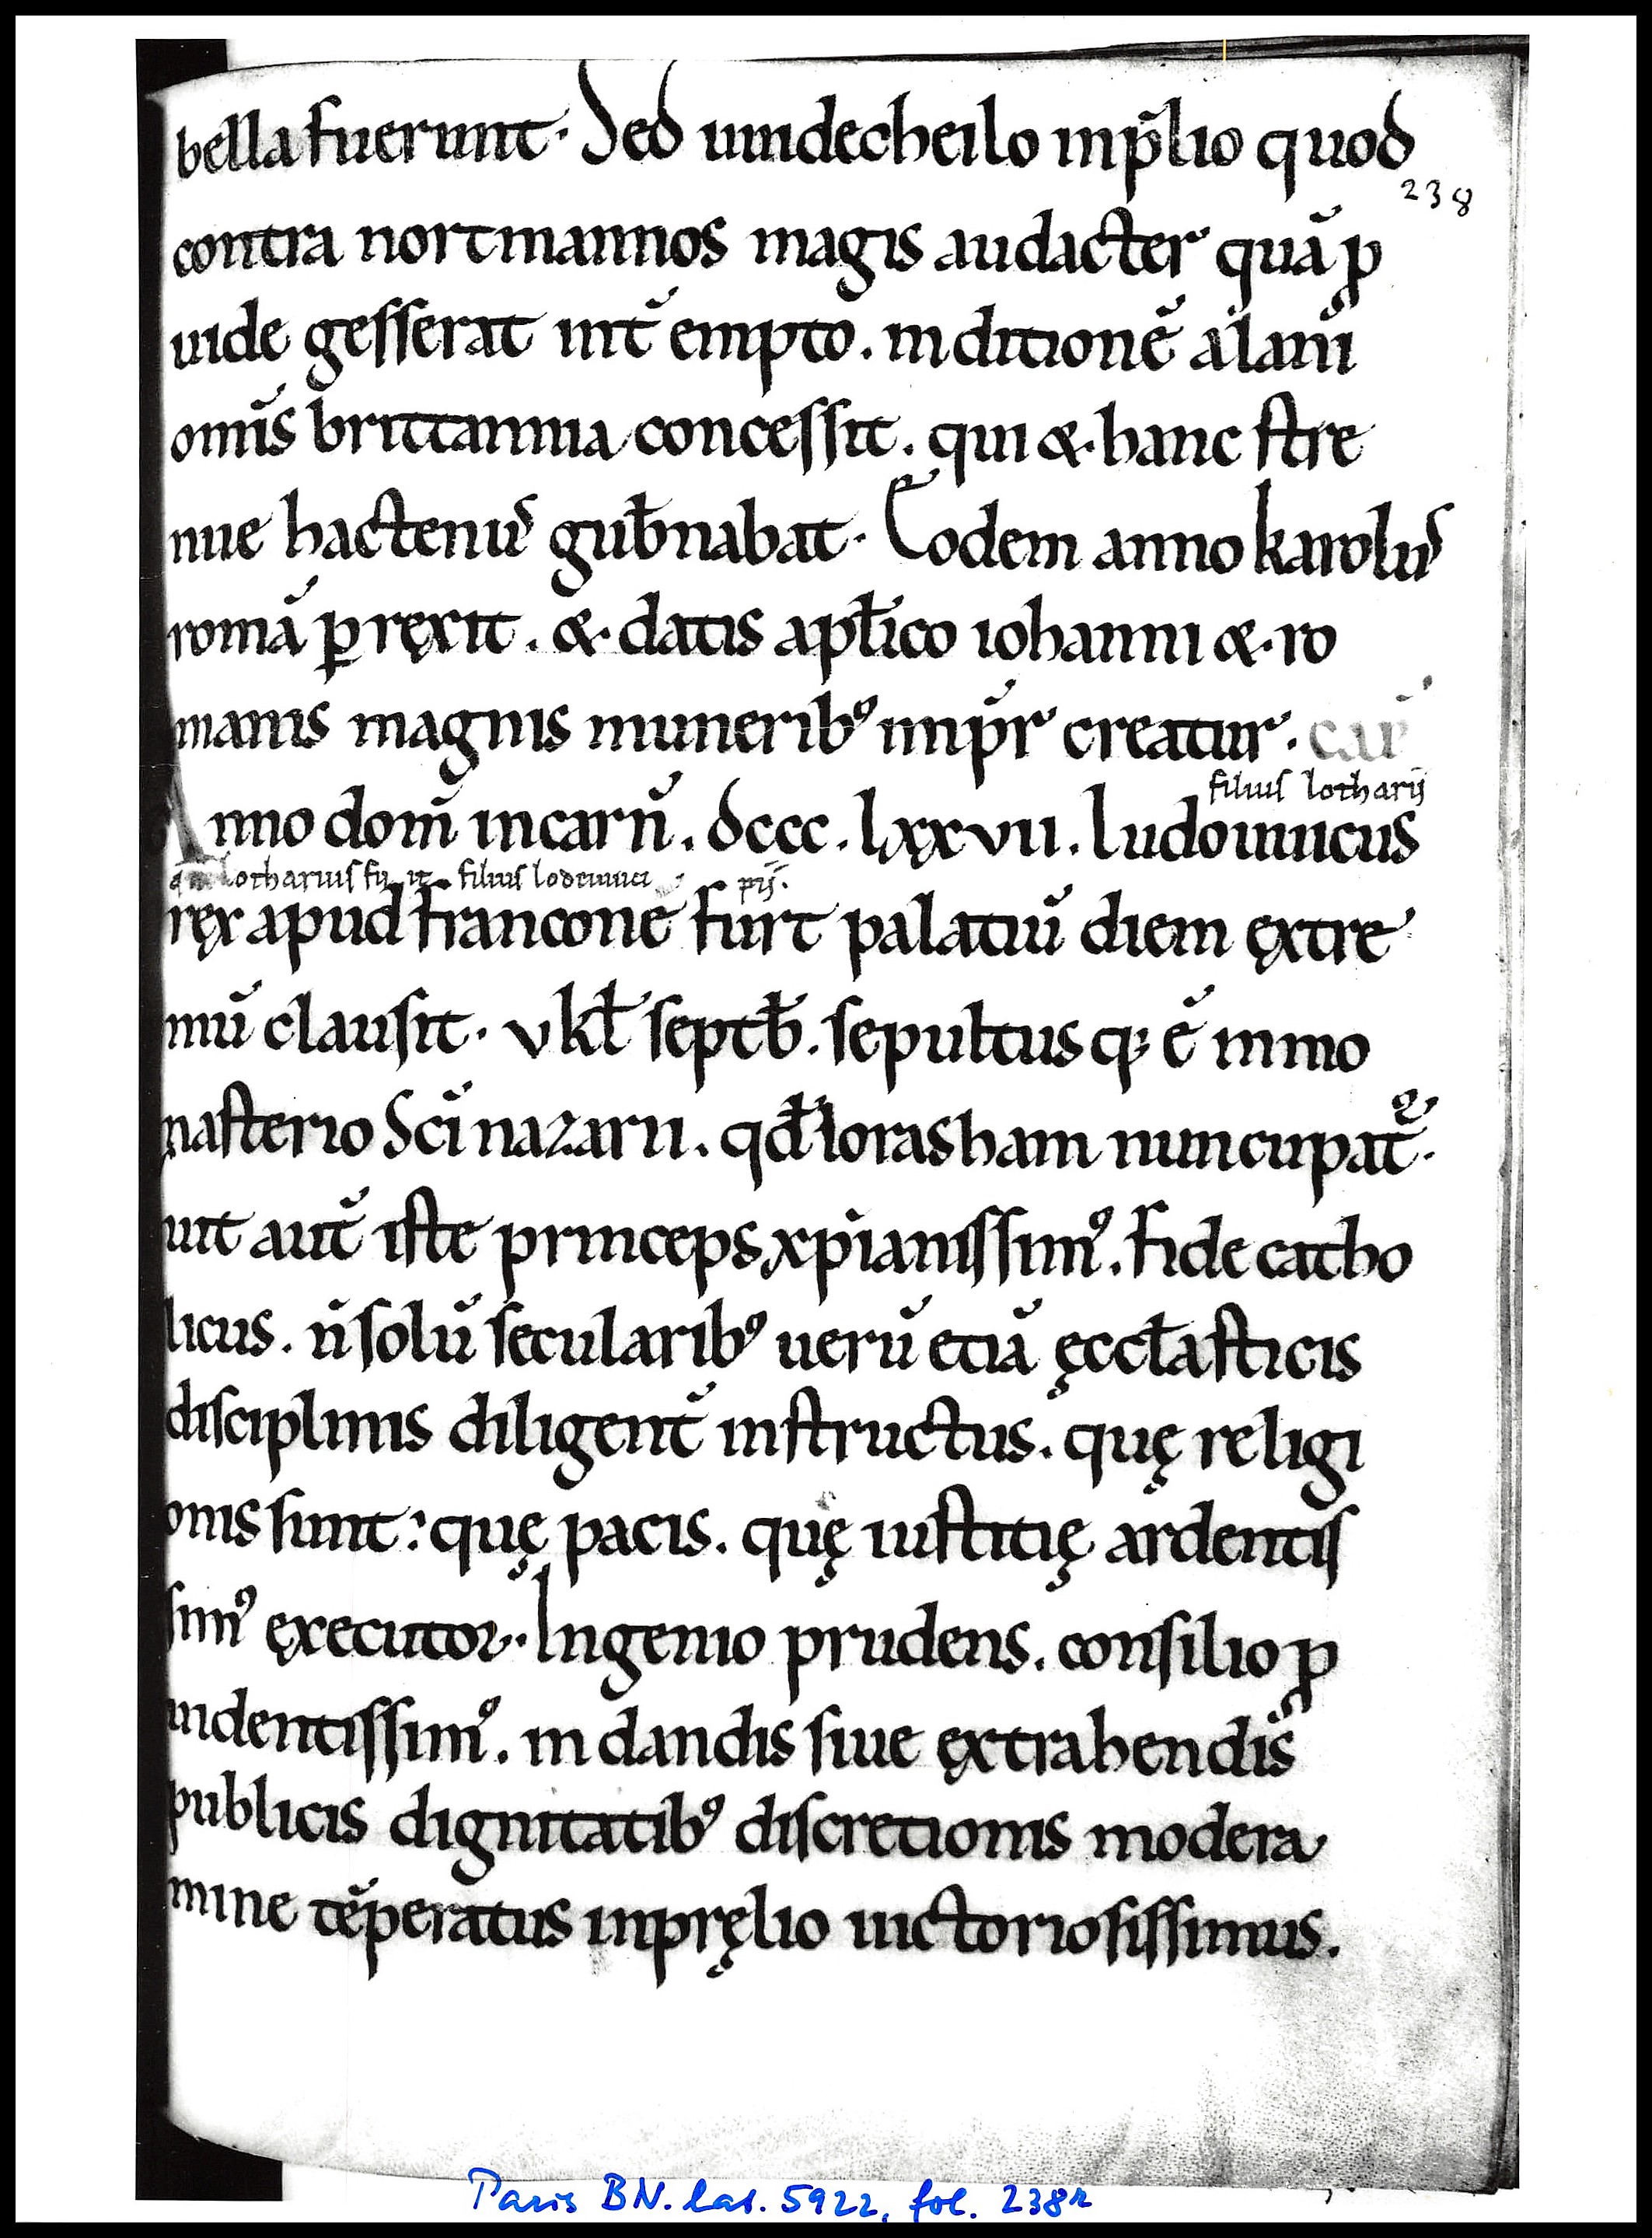 bella fuerunt. Sed uuidecheilo inp̄lio quod
238
contra nortmannos magis audacter quā p
uide gesserat int̄empto. in ditionē alani
om̄is brittannia concessit. qui &. hanc stre
nue hactenus gub̄nabat. Eodem anno karolus
romā p̱ręxit. &. datis apl̄ico iohanni &. ro
manis magnis munerib⁹ imp̄r creatur.
filius lotharij
Anno dom̄ incarn̄. dccc. lxxvii. Ludouuicus
lotharius fuit filius lodouuici pij.
ręx apud franconē furt palatiū diem ęxtre
mū clausit. v kl̄ septb̄. sepultus q; ē in mo
nasterio Sc̄i nazarii. qd̄ lorasham nuncupat̄².
uit aut̄ iste princeps xp̄ianissim⁹. fide catho
licus. n̄ solū secularib⁹ uerū etiā ęccl̄asticis
disciplinis diligent̄ instructus. quę religi
onis sunt: quę pacis. quę iustitię ardentis
sim⁹ ęxecutor. Ingenio prudens. consilio p
uidentissim⁹. in dandis siue ęxtrahendis
publicis dignitatib⁹ discretionis modera
mine tēperatus inpręlio uictoriosissimus.
Paris BN. lat. 5922, fol. 238r